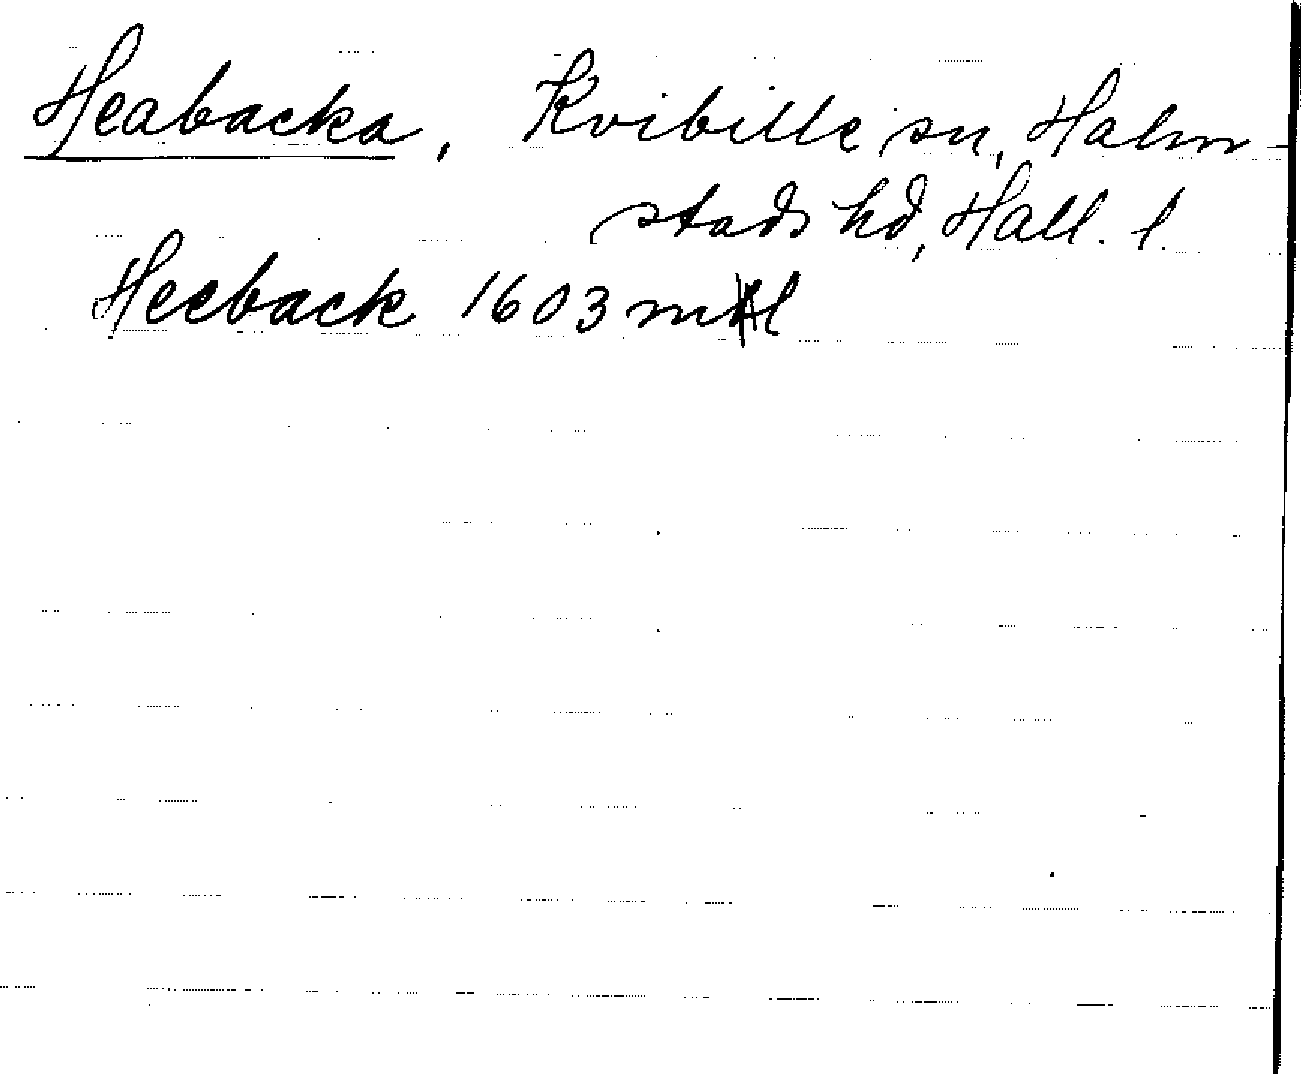 Heabacka, Kvibille sn, Halm-
stads hd, Hall. l.
Heeback 1603